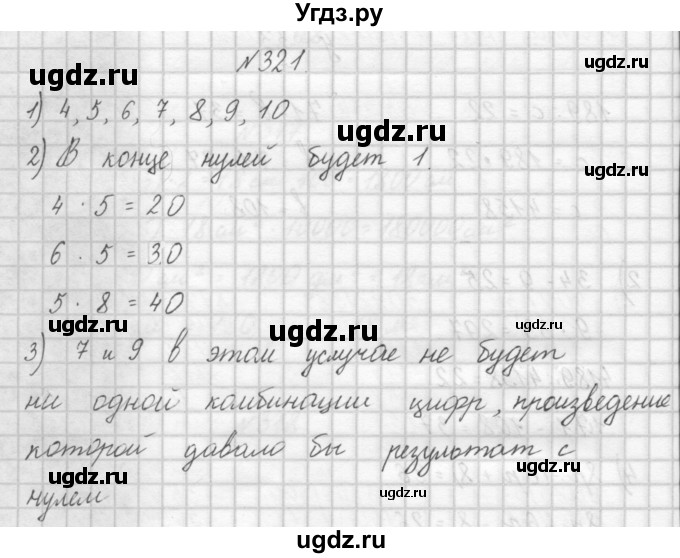 Угдз.ру
№321
1) 4, 5, 6, 7, 8, 9, 10
2) В конце нулей будет 1.
4 · 5 = 20
6 · 5 = 30
5 · 8 = 40
3) 7 и 9 в этом услучае не будет
ни одной комбинации цифр, произведение
которой давало бы результат с
нулем
ugdz.ru
ugdz.ru
ugdz.ru
ugdz.ru
ugdz.ru
ugdz.ru
ugdz.ru
ugdz.ru
ugdz.ru
ugdz.ru
ugdz.ru
ugdz.ru
ugdz.ru